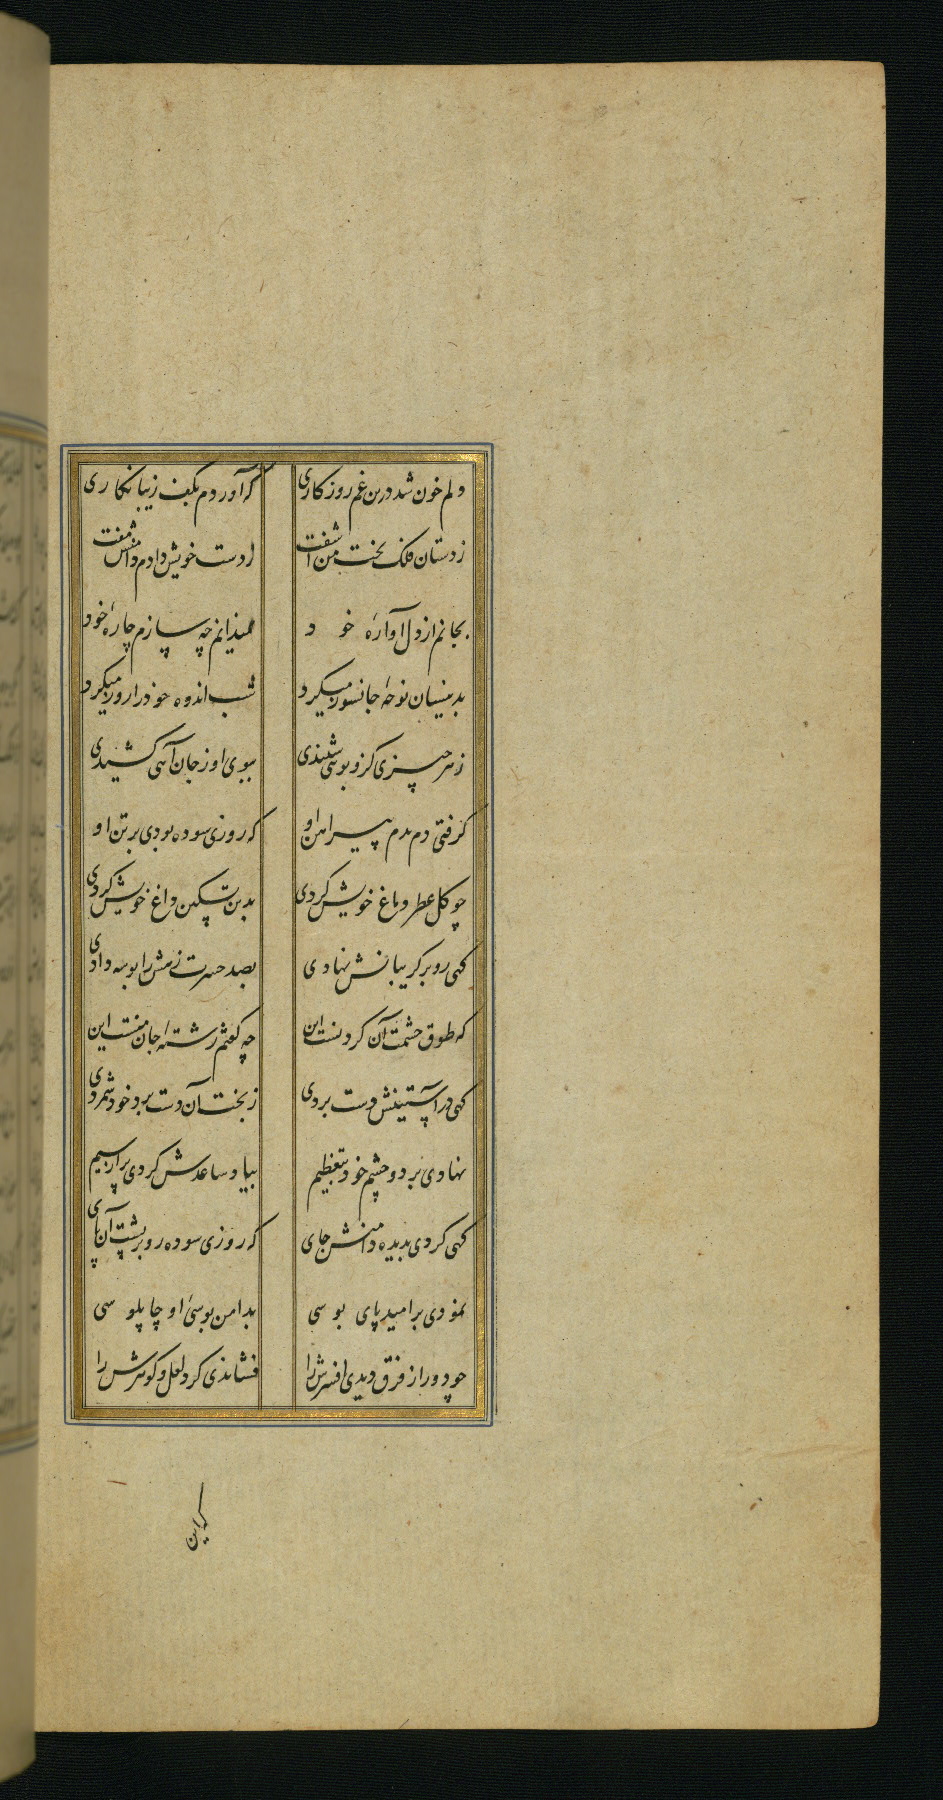 دلم خون شد درین غم روزکاری که آوردم بکف زیبا نکاری
زدستان فلک بخت من آشفت ز دست خویش دادم دامنش مفت
بجانم از دل آوارهٔ خود نمیدانم چه سازم چارهٔ خود
بدینسان نوحهٔ جانسوز میکرد شب اندوه خود را روز میکرد
زهر چیزی کزو بویی شنیدی ببوی او ز جان آهی کشیدی
کرفتی دم بدم پیراهن او که روزی سوده بودی بر تن او
چو کل عطر دماغ خویش کردی بدین تسکین داغ خویش کردی
کهی رو بر کریبانش نهادی بصد حسرت زهش را بوسه دادی
که طوق حشمت آن کردنست این چه کفتم رشتهٔ جان منست این
کهی در آستینش دست بردی ز بخت آن دست برد خود شمردی
نهادی بر دو چشم خود بتعظیم بیاد ساعدش کردی پر از سیم
کهی کردی بدیده دامنش جای که روزی سوده رو بر پشت آن پای
نمودی بر امید پای بوسی بدامن بوسی او چاپلوسی
چو دور از فرق دیدی افسرش را فشاندی کرد لعل و کوهرش را
که این